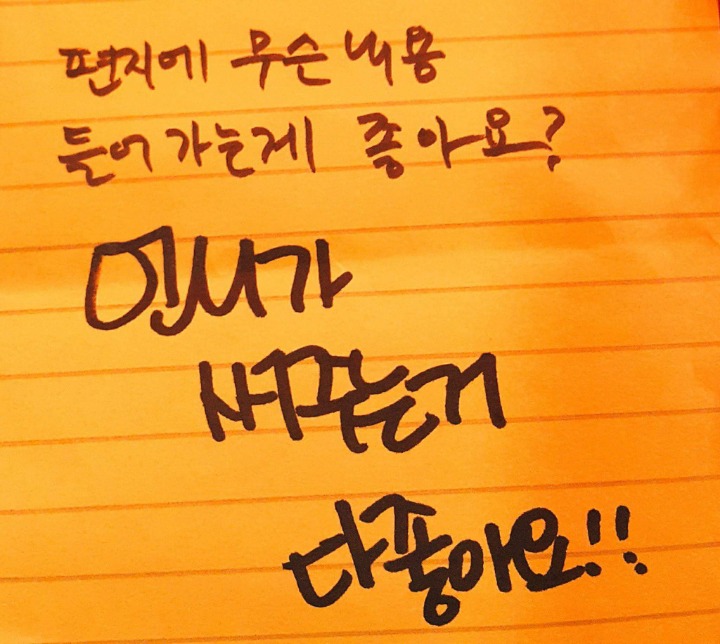 편지에 무슨 내용
들어가는게 좋아요?
인서가
써주는거
다좋아요!!